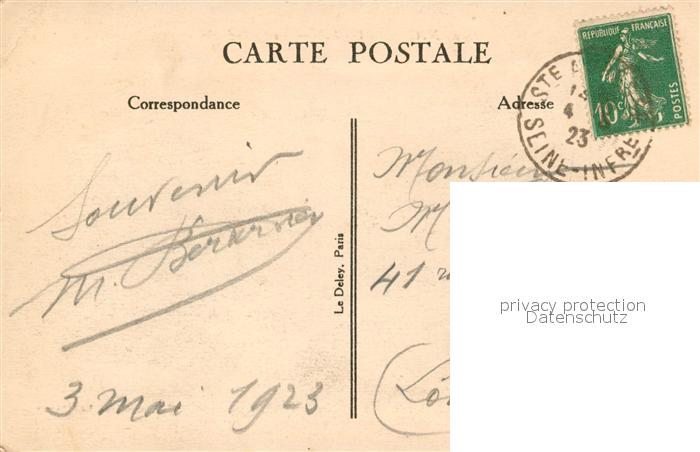 CARTE POSTALE
Correspondance
Adresse
RÉPUBLIQUE FRANÇAISE
10c
POSTES
STE A
4
23
SEINE-INFRE
Souvenir
M.
3 mai 1923
Le Deley, Paris
Monsieur
M
41
privacy protection
Datenschutz